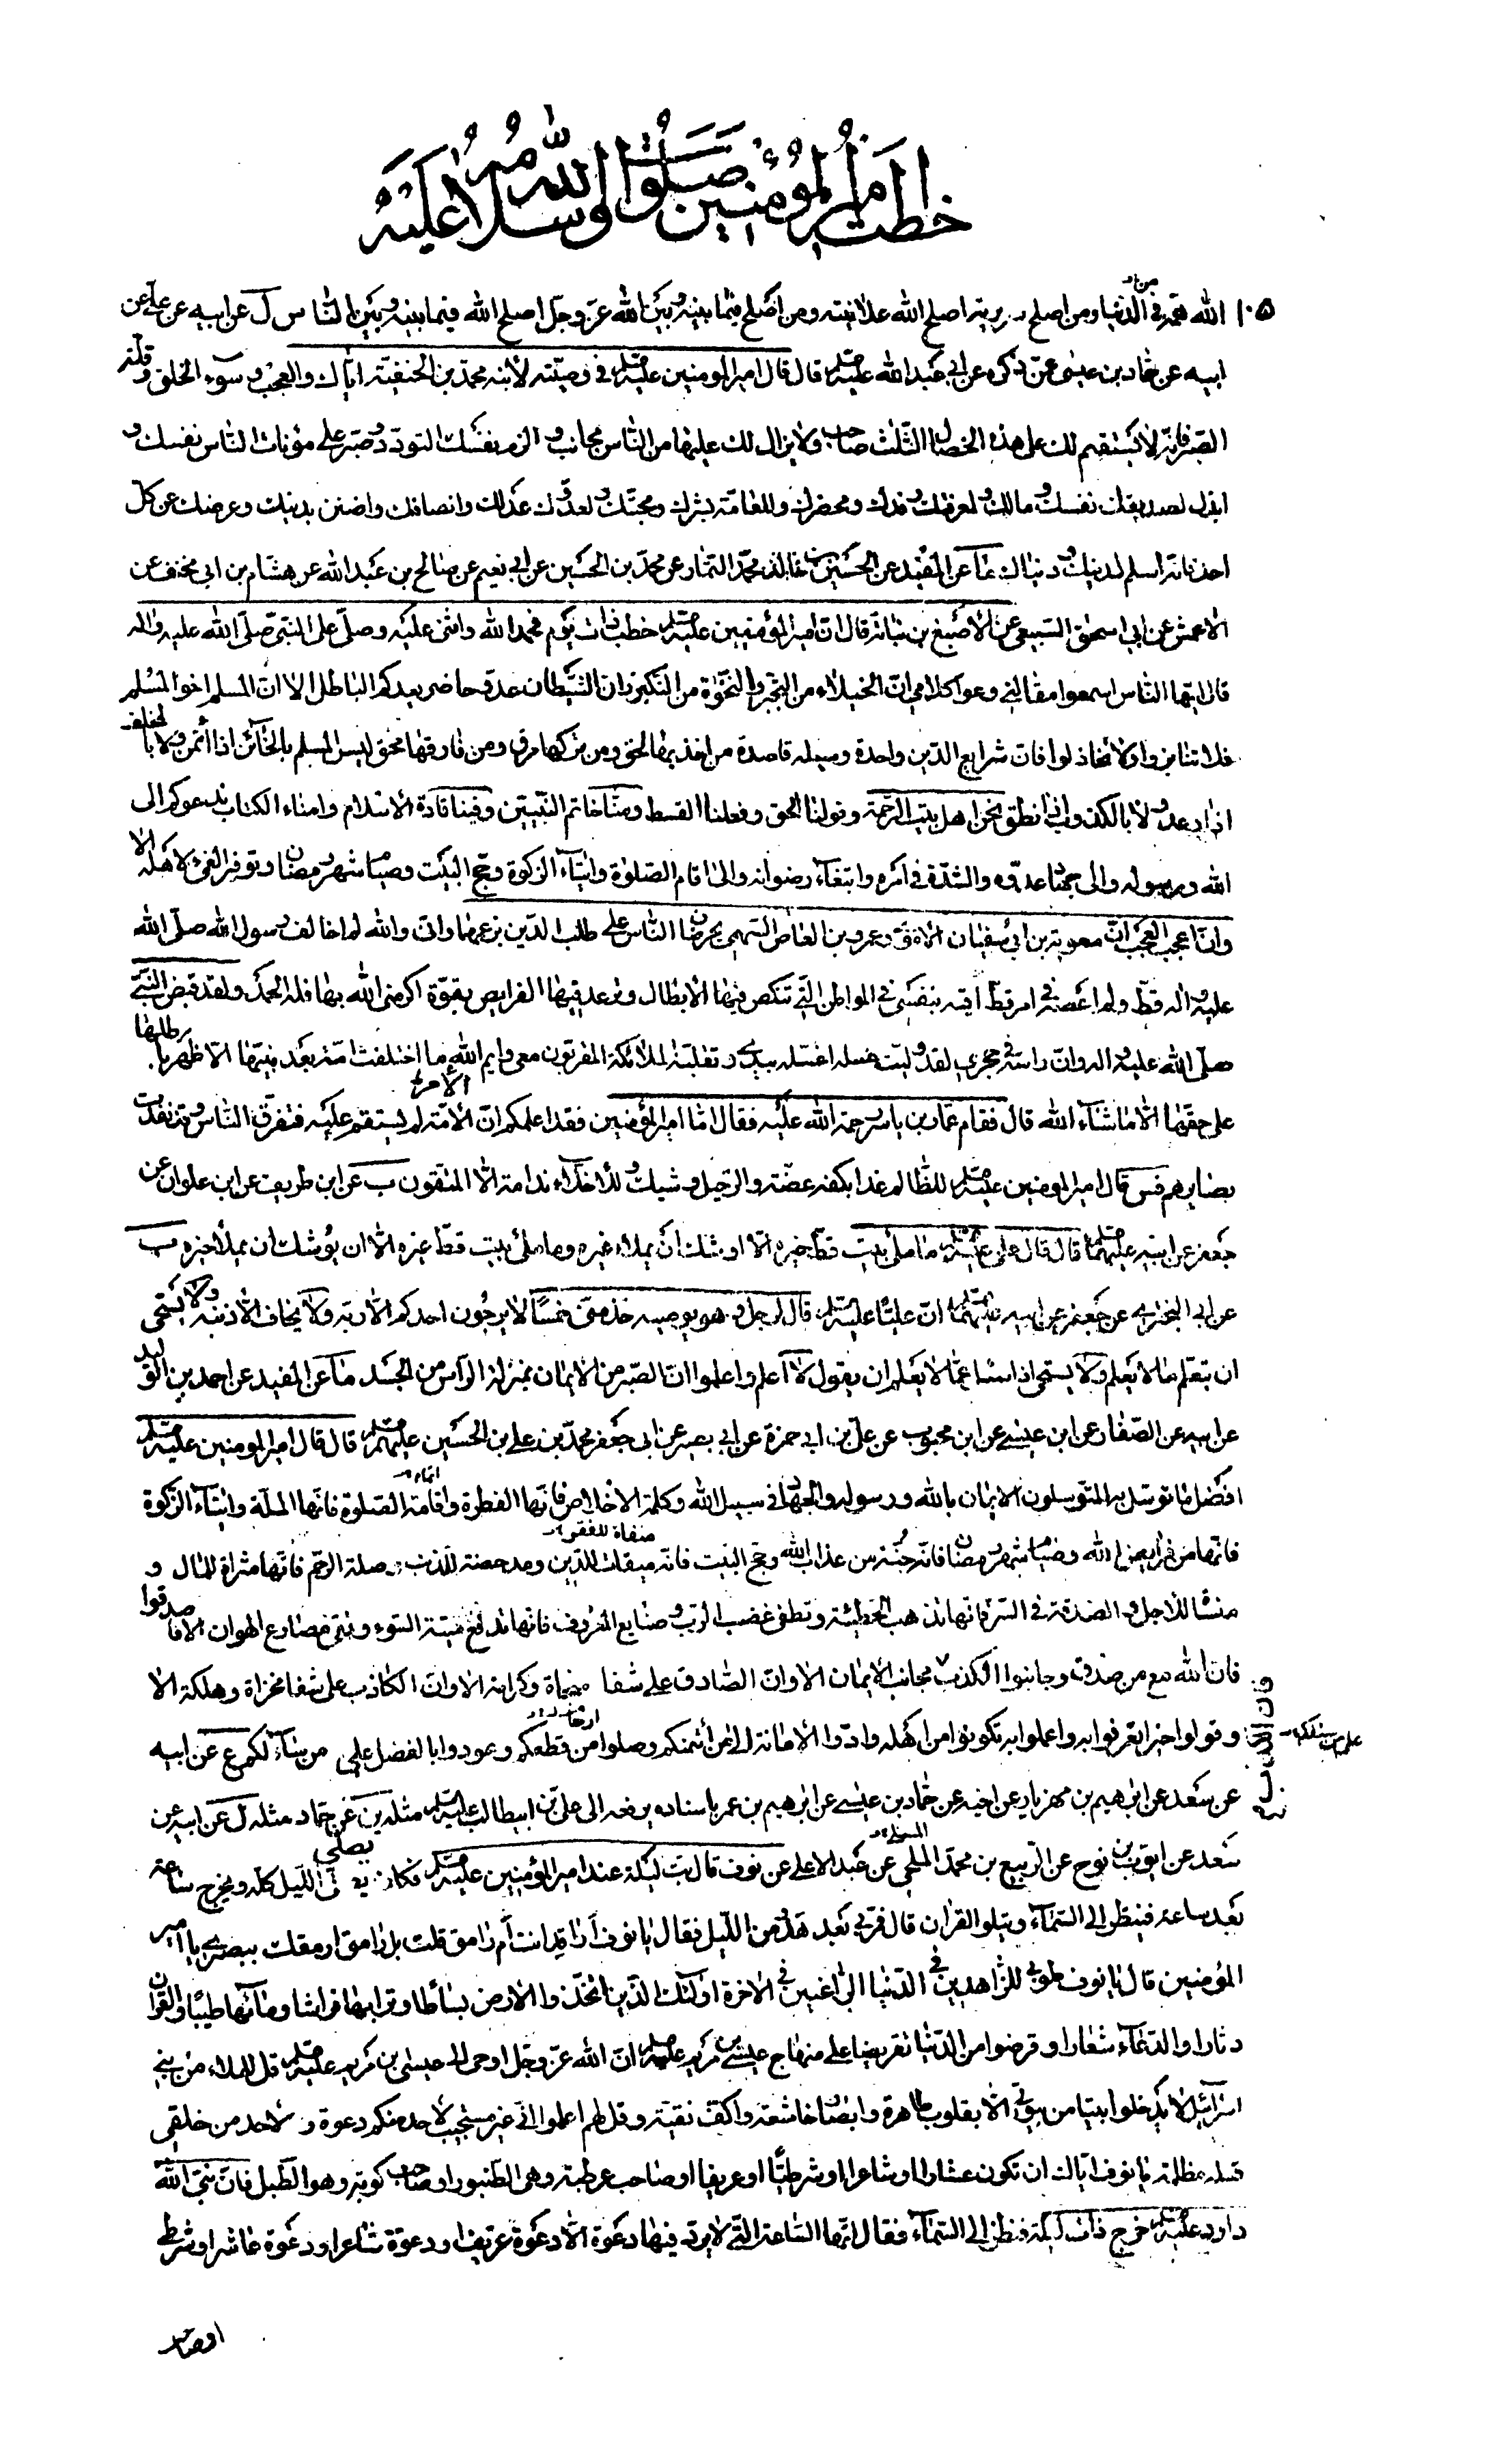 خطب امير المؤمنين صلوات الله وسلامه عليه
١٠٥ الله همه فى الدنيا ومن اصلح سريرته اصلح الله علانيته ومن اصلح فيما بينه وبين الله عز وجل اصلح الله فيما بينه وبين الناس ل عن ابيه عن على عن
ابيه عن حماد بن عيسى عمن ذكره عن ابى عبد الله عليه السلم قال قال امير المومنين عليه السلم فى وصيته لابنه محمد بن الحنفية اياك والعجب وسوء الخلق وقلة
الصبر فانه لا يستقيم لك على هذه الخصال الثلث صاحب ولا يزال لك عليها من الناس مجانب والزم نفسك التودد وصبر على مؤنات الناس نفسك و
ابذل لصديقك نفسك ومالك ولمعرفتك رفدك ومحضرك وللعامة بشرك ومحبتك ولعدوك عدلك وانصافك واضنن بدينك وعرضك عن كل
احد فانه اسلم لدينك ودنياك ما عن المفيد عن الحسين بن على بن محمد التمار عن محمد بن الحسين عن ابى نعيم عن صالح بن عبد الله عن هشام بن ابى مخنف عن
الاعمش عن ابى اسحق السبيعى عن الاصبغ بن نباتة قال ان امير المؤمنين عليه السلم خطب ذات يوم فحمد الله واثنى عليه وصلى على النبى صلى الله عليه واله
قال ايها الناس اسمعوا مقالتى وعوا كلامى ان الخيلاء من التجبر والنخوة من التكبر وان الشيطان عدو حاضر يعدكم الباطل الا ان المسلم اخوا المسلم
فلا تنابزوا ولا تخاذلوا فان شرايع الدين واحدة وسبله قاصدة من اخذ بها لحق ومن تركها مرق ومن فارقها محق ليس المسلم بالخائن اذا أتمن ولا بالمخلف
اذا وعد ولا بالكذوب اذا نطق نحن اهل بيت الرحمة وقولنا الحق وفعلنا القسط ومنا خاتم النبيين وفينا قادة الاسلام وامناء الكتاب ندعوكم الى
الله ورسوله والى جهاد عدوه والشدة فى امره وابتغاء رضوانه والى اقام الصلوة وايتاء الزكوة وحج البيت وصيام شهر رمضان وتوفير الفىء لاهله الا
وان اعجب العجب ان معوية بن ابى سفيان الاموى وعمرو بن العاص السهمى يحرضان الناس على طلب الدين بزعمهما وانى والله لم اخالف رسول الله صلى الله
عليه واله قط ولم اعصه فى امر قط اقيه بنفسى فى المواطن التى تنكص فيها الابطال وترعد فيها الفرايص بقوة اكرمنى الله بها فله الحمد ولقد قبض النبى
صلى الله عليه واله وان راسه فى حجرى ولقد وليت غسله اغسله بيدى وتقلبه الملائكة المقربون معى وايم الله ما اختلفت امة بعد نبيها الا ظهر باطلها
على حقها الا ما شاء الله قال فقام عمار بن ياسر رحمة الله عليه فقال اما امير المؤمنين فقد اعلمكم ان الامة لم يستقم عليه الامر فتفرق الناس وقد نفذت
بصايرهم فس قال امير المومنين عليه السلم للظالم غدا بكفه عضة والرحيل وشيك وللاخلاء ندامة الا المتقون ب عن ابن طريف عن ابن علوان عن
جعفر عن ابيه عليهما السلم قال قال على عليه السلم ما ملئ بيت قط خيره الا اوشك ان يملاء غيره وما ملئ بيت قط غيره الا ان يوشك ان يملأ خيره ب
عن ابى البخترى عن جعفر عن ابيه عليهما السلم ان عليا عليه السلم قال لرجل وهو يوصيه خذ منى خمسا لا يرجون احدكم الا ربه ولا يخاف الا ذنبه ولا يستحى
ان يتعلم ما لا يعلم ولا يستحى اذا سئل عما لا يعلم ان يقول لا اعلم واعلموا ان الصبر من الايمان بمنزلة الرأس من الجسد ما عن المفيد عن احمد بن الوليد
عن ابيه عن الصفار عن ابن عيسى عن ابن محبوب عن على بن ابى حمزة عن ابى بصير عن ابى جعفر محمد بن على بن الحسين عليهم السلم قال قال امير المومنين عليه السلم
افضل ما توسل به المتوسلون الايمان بالله ورسوله والجهاد فى سبيل الله وكلمة الاخلاص فانها الفطرة واقامة الصلوة فانها الملة وايتاء الزكوة
فانها من فرايض الله وصيام شهر رمضان فانه جنة من عذاب الله وحج البيت فانه ميقات للدين ومدحضة للذنب وصلة الرحم فانها مثراة للمال و
منفاة للفقر
منسأة للاجل والصدقة فى السر فانها تذهب الخطيئة وتطفى غضب الرب وصنايع المعروف فانها تدفع ميتة السوء وتقى مصارع الهوان الا فاصدقوا
فان الله مع من صدق وجانبوا الكذب فان الكذب مجانب الايمان الا وان الصادق على شفا منجاة وكرامة الا وان الكاذب على شفا مخزاة وهلكة الا
وقولوا خيرا تعرفوا به واعملوا به تكونوا من اهله وادوا الامانة الى من أئتمنكم وصلوا من قطعكم وعودوا بالفضل على من سئلكم ع عن ابيه
عن سعد عن ابرهيم بن مهزيار عن اخيه عن حماد بن عيسى عن ابرهيم بن عمر باسناده يرفعه الى على بن ابيطالب عليه السلم مثله ين عن حماد مثله ل عن ابيه عن
سعد عن ايوب بن نوح عن الربيع بن محمد المسلى عن عبد الاعلى عن نوف قال بت ليلة عند امير المؤمنين عليه السلم فكان يصلى الليل كله ويخرج ساعة
بعد ساعة فينظر الى السماء ويتلو القران قال فمر بى بعد هدو من الليل فقال يا نوف أراقد انت أم رامق قلت بل رامق ارمقك ببصرى يا امير
المؤمنين قال يا نوف طوبى للزاهدين فى الدنيا الراغبين فى الاخرة اولئك الذين اتخذوا الارض بساطا وترابها فراشا وماءها طيبا والقران
دثارا والدعاء شعارا وقرضوا من الدنيا تقريضا على منهاج عيسى بن مريم عليه السلم ان الله عز وجل اوحى الى عيسى بن مريم عليه السلم قل للملاء من بنى
اسرائيل لا يدخلوا بيتا من بيوتى الا بقلوب طاهرة وابصار خاشعة واكف نقية وقل لهم اعلموا انى غير مستجيب لاحد منكم دعوة ولاحد من خلقى
قبله مظلمة يا نوف اياك ان تكون عشارا او شاعرا او شرطيا او عريفا او صاحب عرطبة وهى الطنبور او صاحب كوبة وهو الطبل فان نبى الله
داود عليه السلم خرج ذات ليلة فنظر الى السماء فقال انها الساعة التى لا يرد فيها دعوة الا دعوة عريف او دعوة شاعر او دعوة عاشر او شرطى
او صاحب